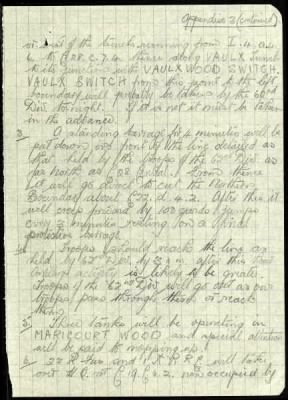 Appendix 3 (continued)
of the trench running from I.4.a.4.
6. to thence along VAULX
to its junction with VAULX WOOD SWITCH
VAULX SWITCH from this point to the left
boundary will probably be taken by the 62nd
Div. tonight. If it is not it must be taken
in the advance.
3. A standing barrage for 4 minutes will be
put down in front of the line as
that held by the troops of the 62nd Div. as
far North as From thence
it will go direct to cut the Northern
Boundary about C.22.d.4.2. After this it
will creep forward by 100 yards jumps
every 3 minutes resting on a final
protective barrage.
4. Troops should reach the line as
held by 62nd Div. by 3 a.m. after this time
activity is likely to be greater.
Troops of the 62nd Div. will go out as our
troops pass through them or reach
them.
5. Three tanks will be operating in
MARICOURT WOOD and special attention
will be paid to mopping up.
6. 22 R. Fus and 1 K.R.R.C. will take
over H.Q. at now occupied by